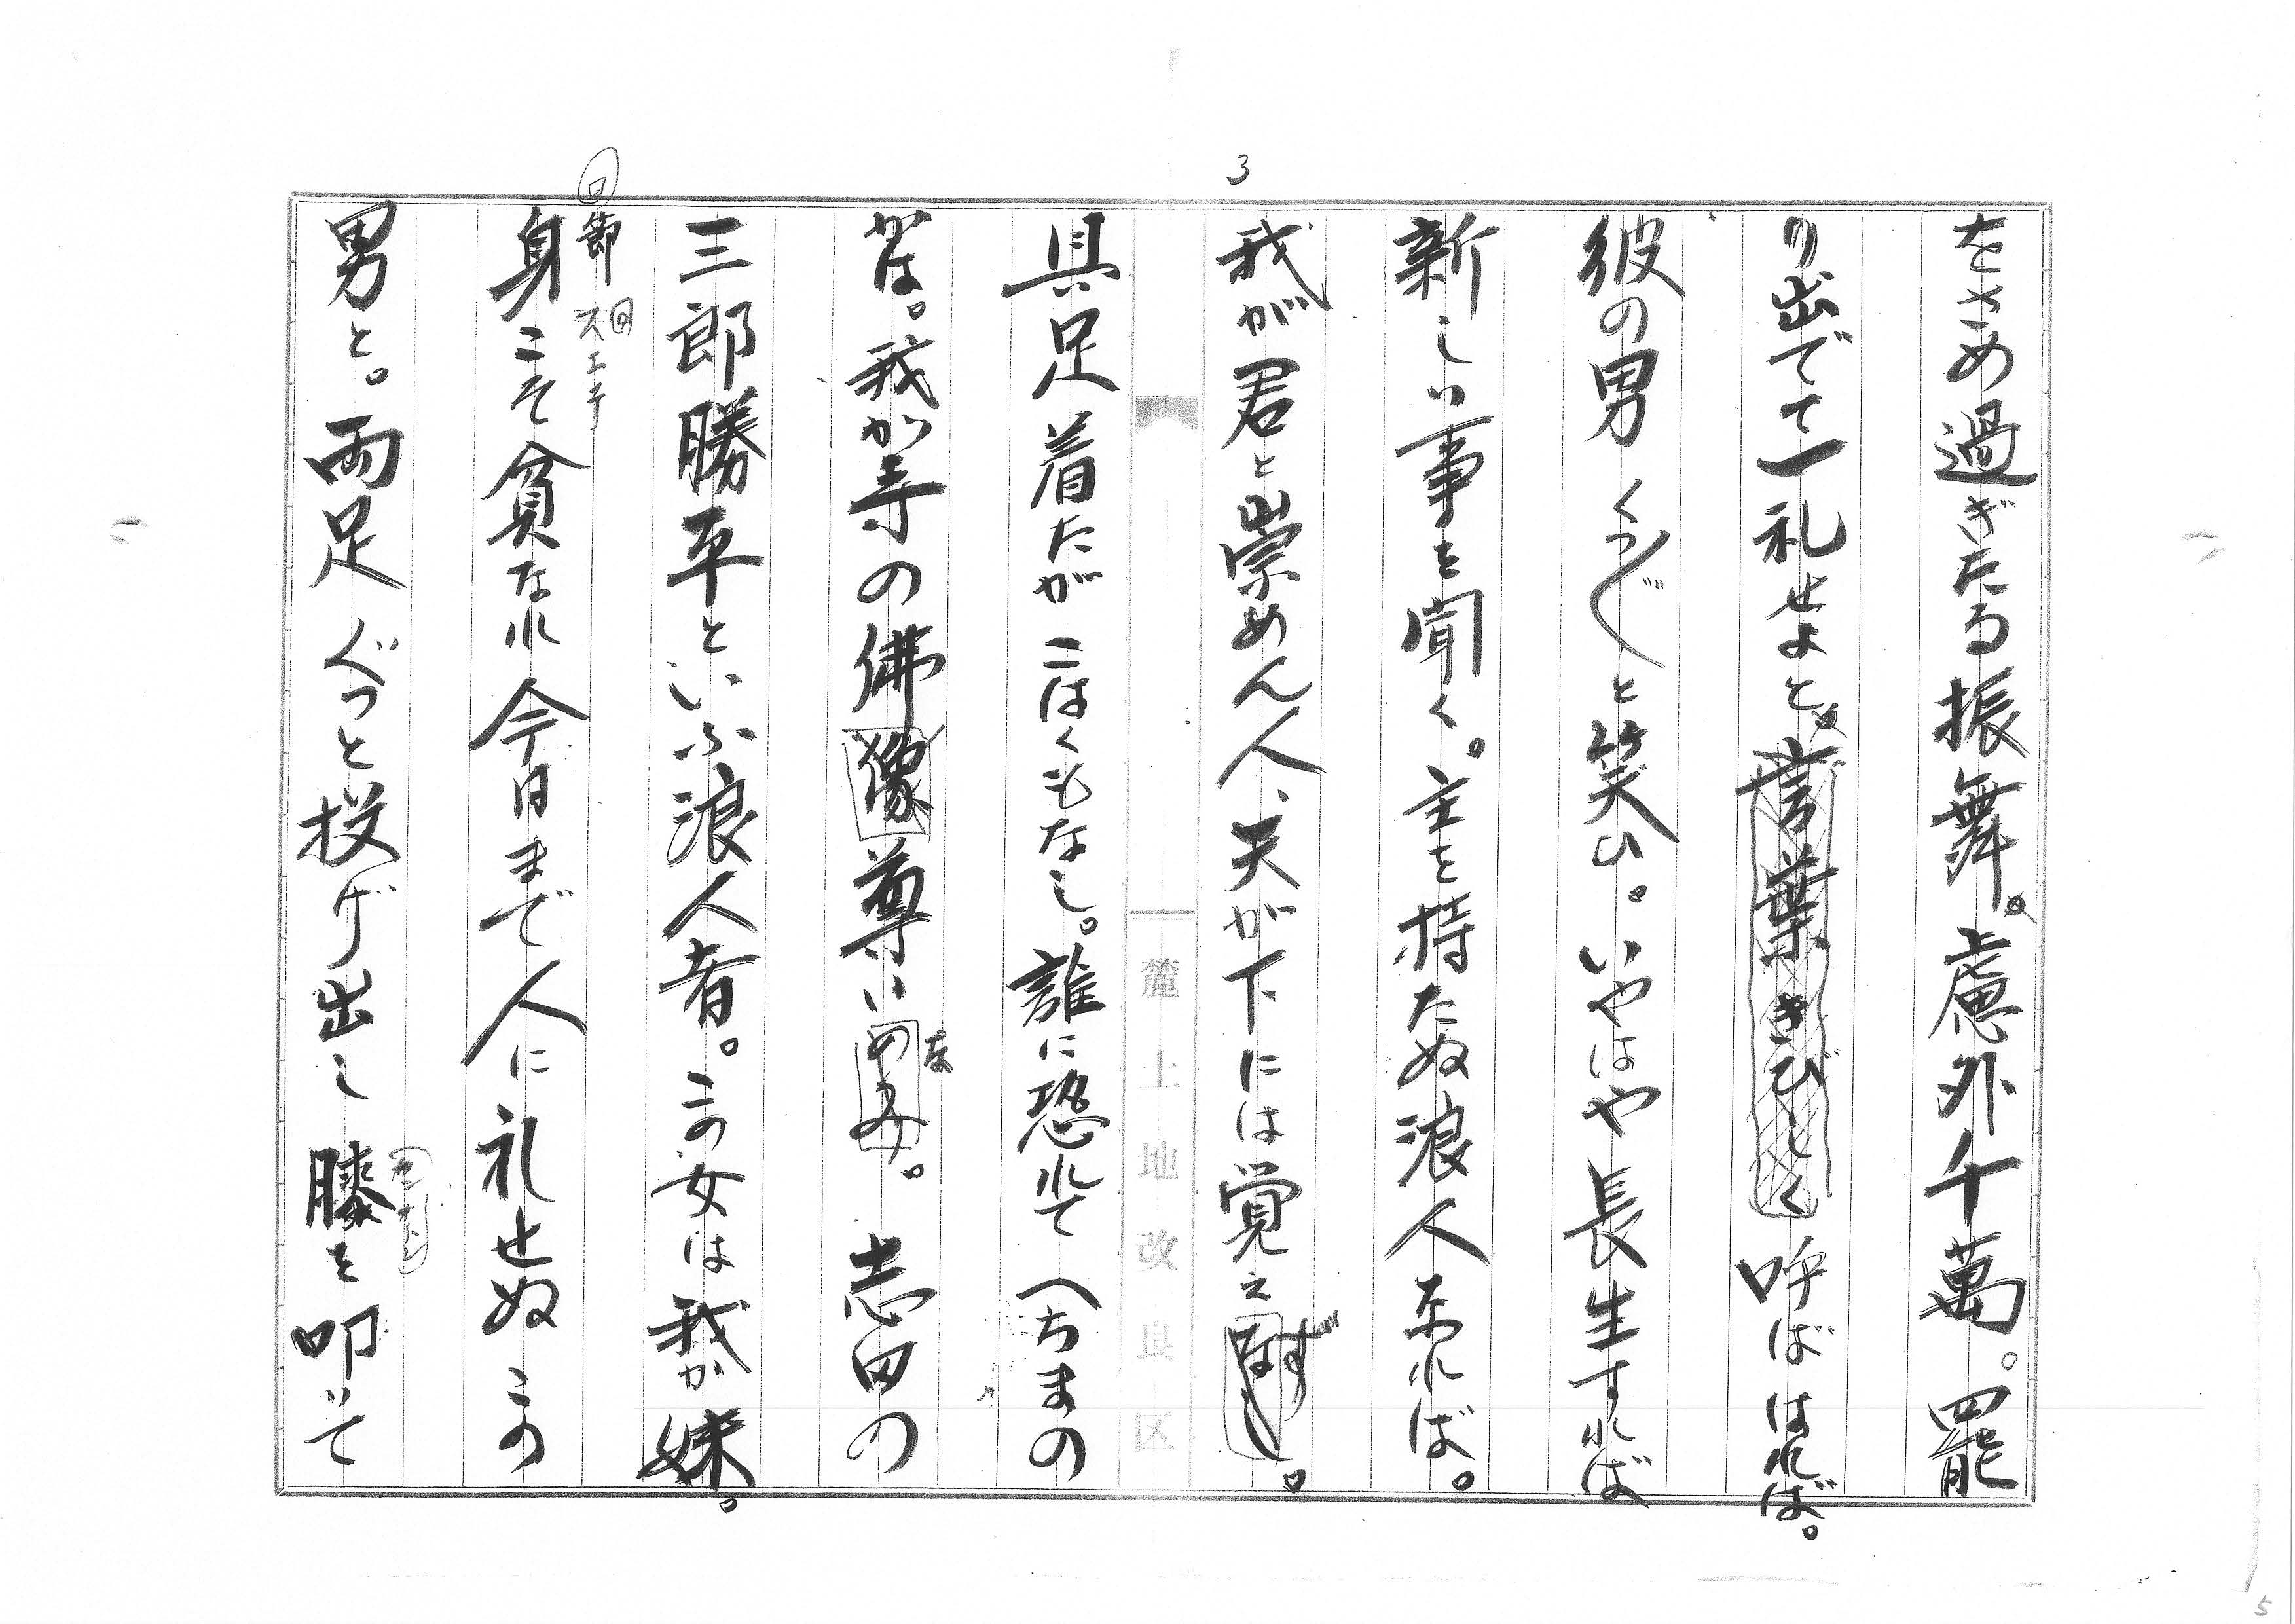 3
をさめ過ぎたる振舞。慮外千萬。罷
り出でて一礼せよと 言葉きびしく 呼ばはれば。
彼の男 くつ〲と笑ひ。いやはや長生すれば
新しい事を聞く。主を持たぬ浪人なれば。
我が君と崇めん人、天が下には覚えず。
麓土地改良区
具足着たがこはくもなし。誰に恐れて へちまの
かは。我が寺の佛像尊いな。志田の
三郎勝平といふ浪人者。この女は我が妹。
回節 スヱテ
身こそ貧なれ今日まで人に礼せぬ この
男と。両足ぐつと投げ出し 膝を叩いて
5